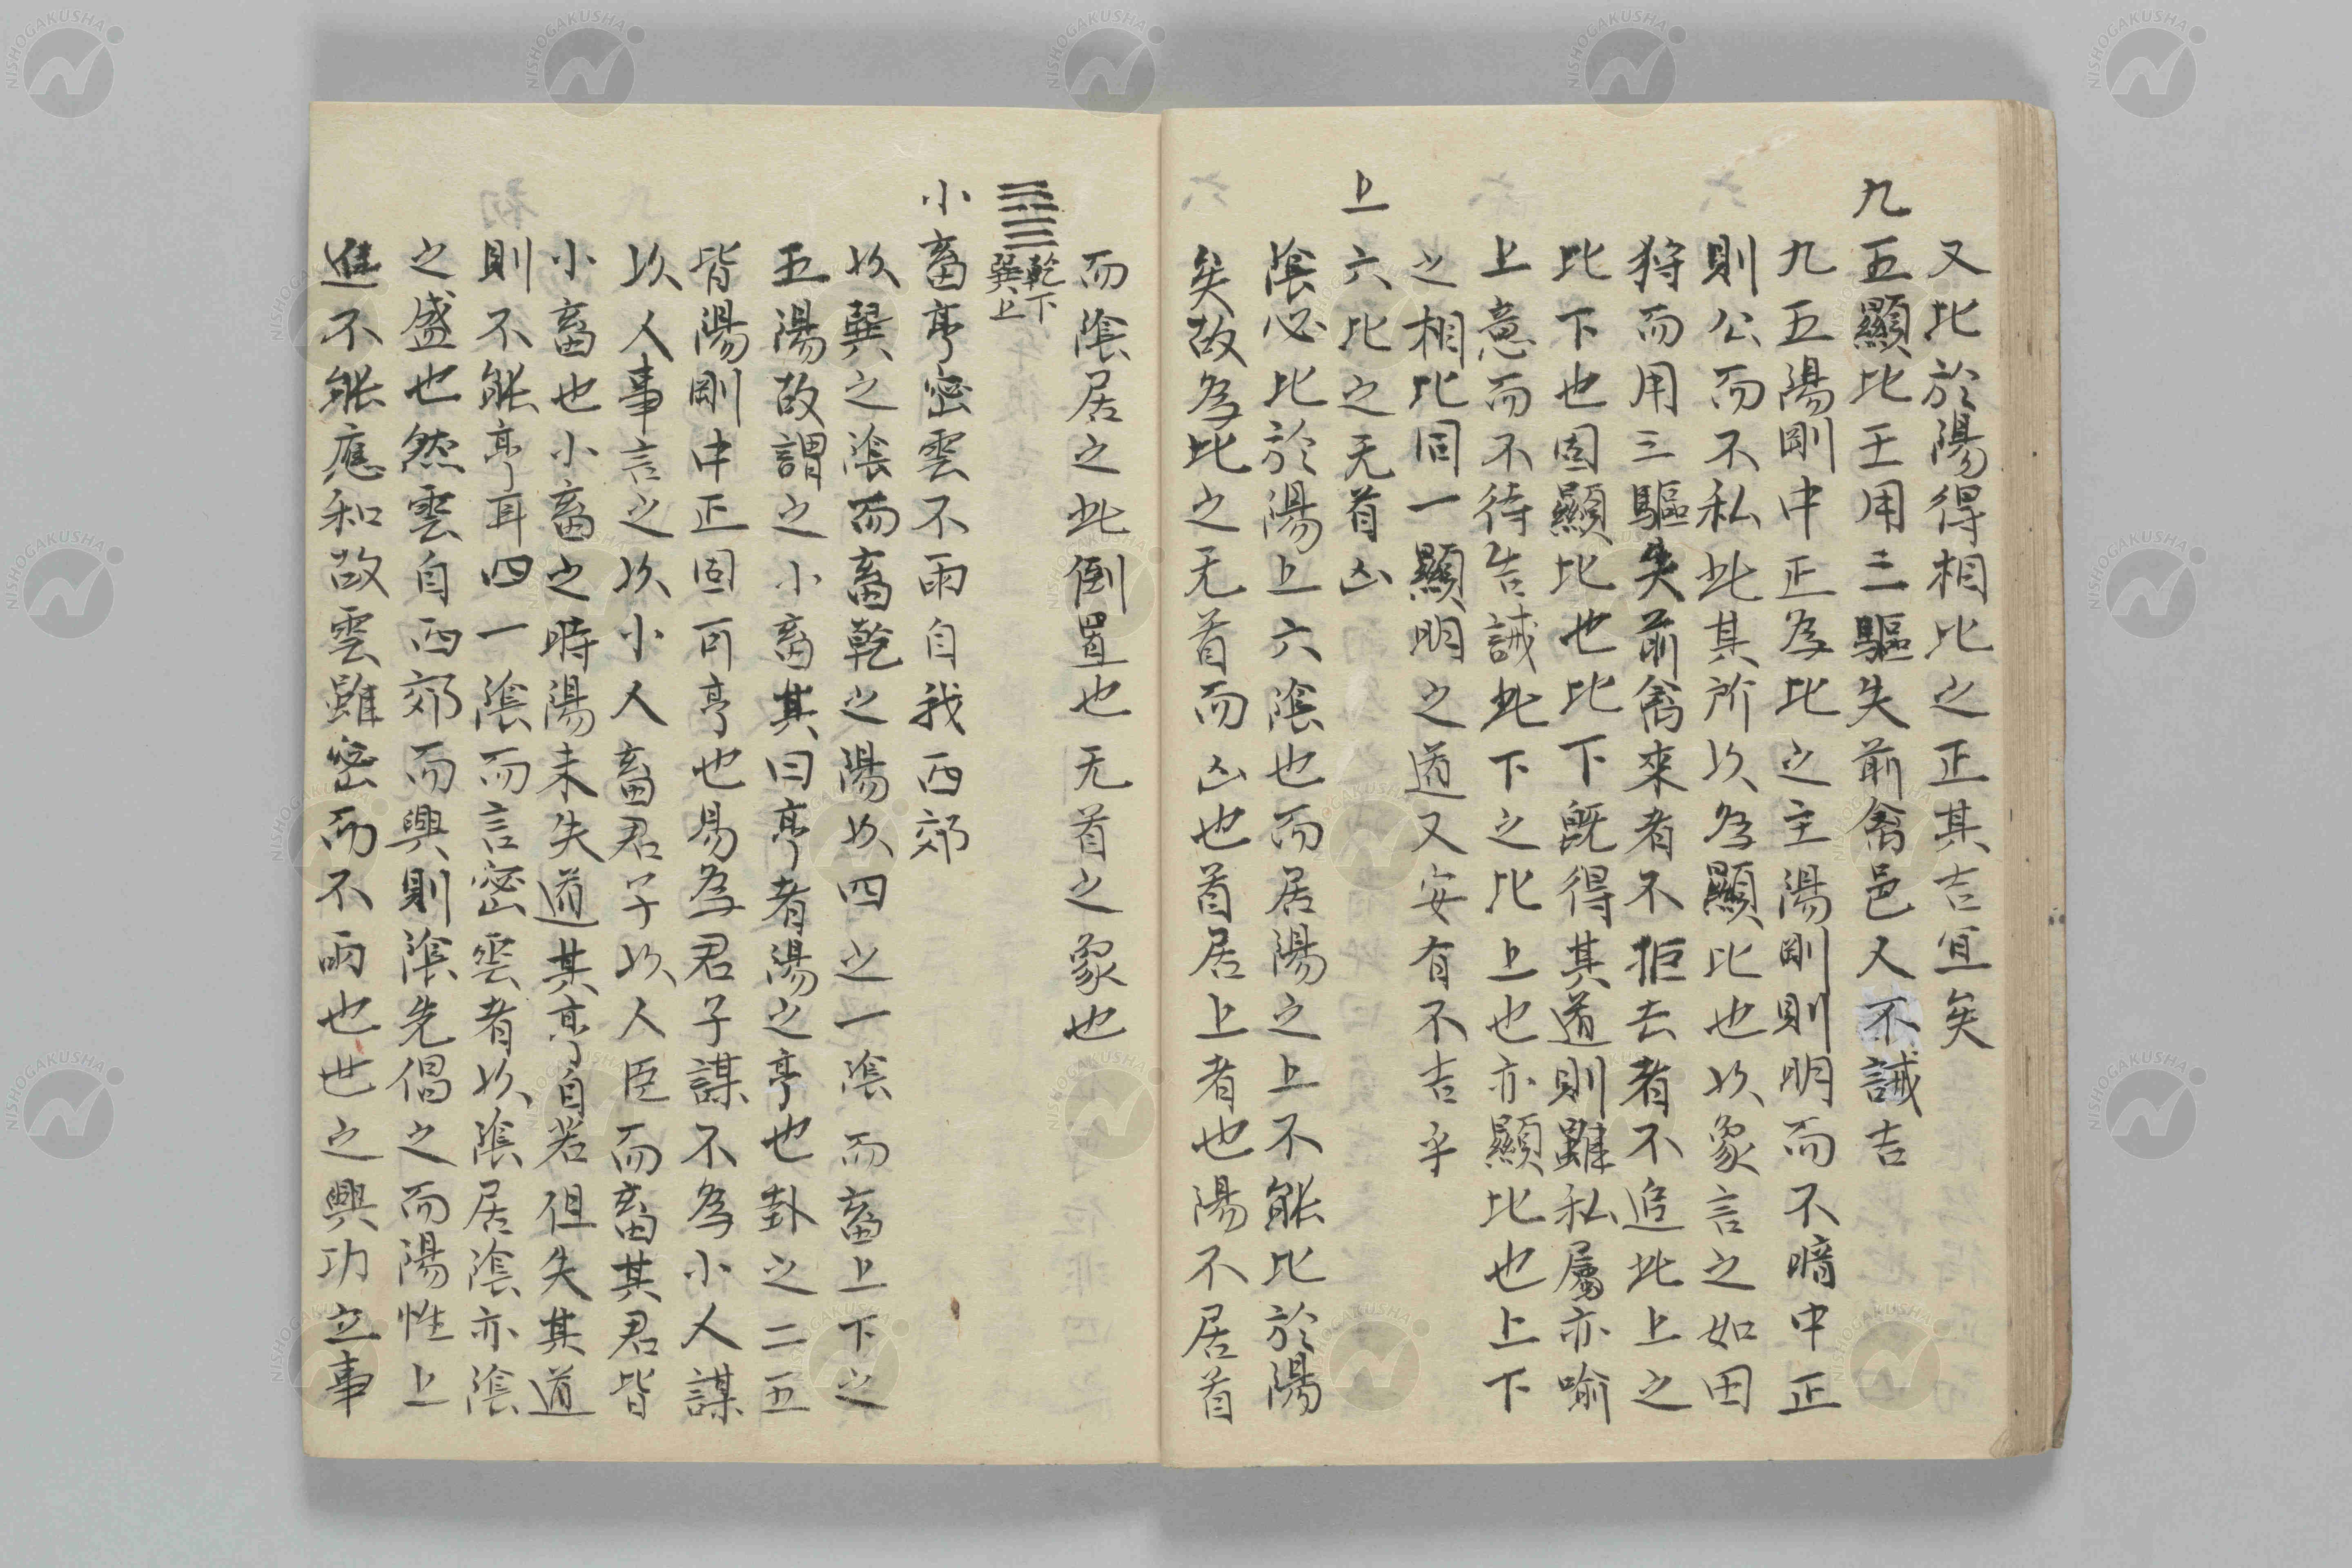 又比於陽得相比之正其吉宜矣
九五顯比王用三驅失前禽邑人不誡吉
九五陽剛中正為比之主陽剛則明而不暗中正
則公而不私此其所以為顯比也以象言之如田
狩而用三驅失前禽來者不拒去者不追此上之
比下也固顯比也比下既得其道則雖私屬亦喻
上意而不待告誡此下之比上也亦顯比也上下
之相比同一顯明之道又安有不吉乎
上六比之无首凶
陰必比於陽上六陰也而居陽之上不能比於陽
矣故為比之无首而凶也首居上者也陽不居首
而陰居之此倒置也无首之象也
䷈乾下巽上
小畜亨密雲不雨自我西郊
以巽之陰而畜乾之陽以四之一陰而畜上下之
五陽故謂之小畜其曰亨者陽之亨也卦之二五
皆陽剛中正固可亨也易為君子謀不為小人謀
以人事言之以小人畜君子以人臣而畜其君皆
小畜也小畜之時陽未失道其亨自若但失其道
則不能亨耳四一陰而言密雲者以陰居陰亦陰
之盛也然雲自西郊而興則陰先倡之而陽性上
進不能應和故雲雖密而不雨也世之興功立事
NISHOGAKUSHA